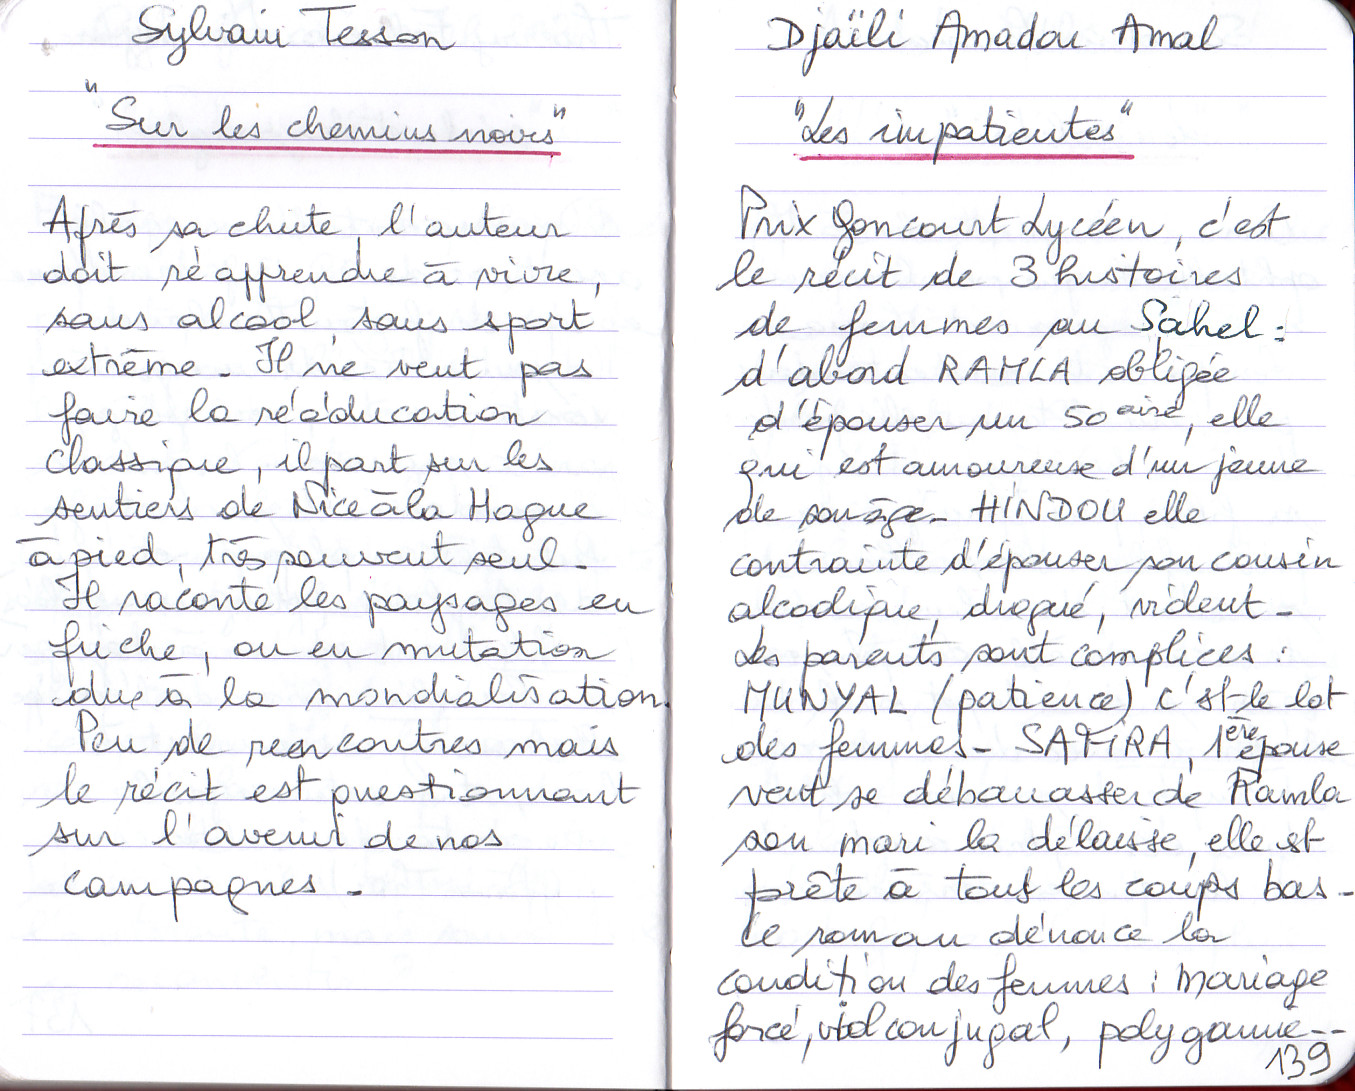 Sylvain Tesson
"Sur les chemins noirs"
Après sa chute, l'auteur
doit réapprendre à vivre,
sans alcool sans sport
extrême. Il ne veut pas
faire la rééducation
classique, il part sur les
sentiers de Nice à la Hague
à pied, très souvent seul.
Il raconte les paysages en
friche, ou en mutation
due à la mondialisation.
Peu de rencontres mais
le récit est questionnant
sur l'avenir de nos
campagnes.
Djaïli Amadou Amal
"Les impatientes"
Prix Goncourt Lycéen, c'est
le récit de 3 histoires
de femmes au Sahel :
d'abord RAMLA obligée
d'épouser un 50aire, elle
qui est amoureuse d'un jeune
de son âge. HINDOU elle
contrainte d'épouser son cousin
alcoolique, drogué, violent.
Les parents sont complices :
MUNYAL (patience) c'est le lot
des femmes. SAFIRA, 1ère épouse
veut se débarrasser de Ramla
son mari la délaisse, elle est
prête à tous les coups bas.
Le roman dénonce la
condition des femmes : mariage
forcé, viol conjugal, polygamie--
139